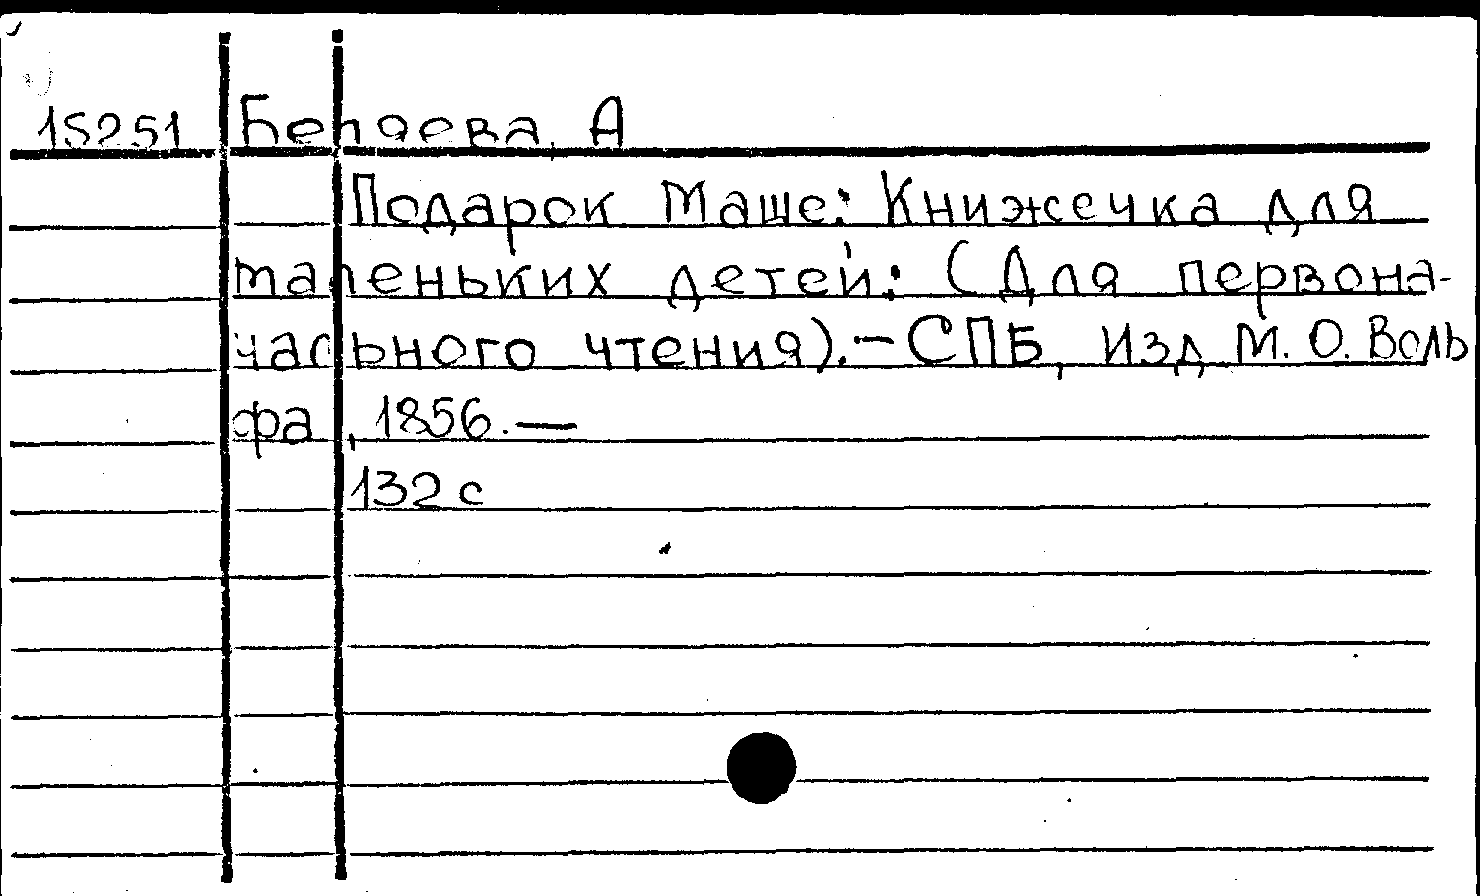 15251 Беляева, А
Подарок Маше: Книжечка для
маленьких детей: (Для первона-
чального чтения).-СПБ, Изд М. О. Воль
фа, 1856.—
132 с